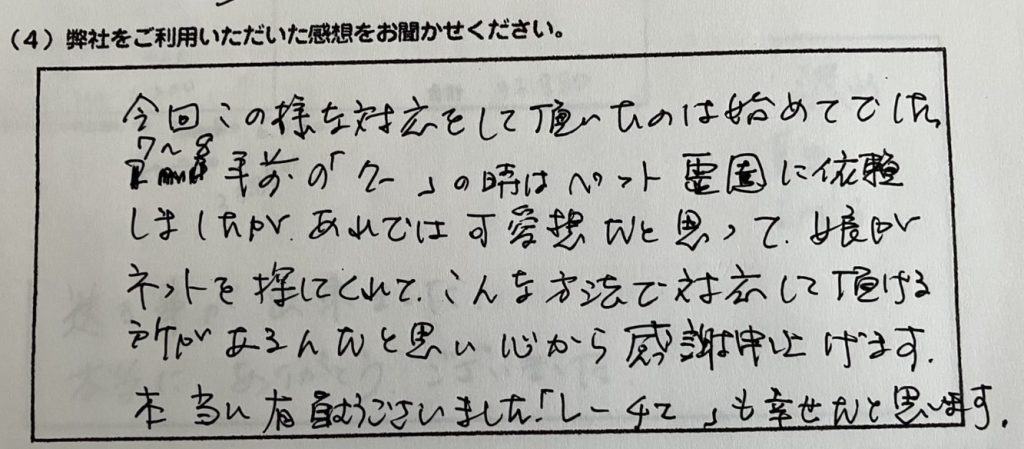 (4) 弊社をご利用いただいた感想をお聞かせください。
今回この様な対応をして頂いたのは始めてでした。
7〜8
年前の「クー」の時はペット霊園に依頼
しましたが、あれでは可愛想だと思って、娘が
ネットを探してくれて、こんな方法で対応して頂ける
所があるんだと思い心から感謝申し上げます。
本当に有難うございました。「レーチェ」も幸せだと思います。